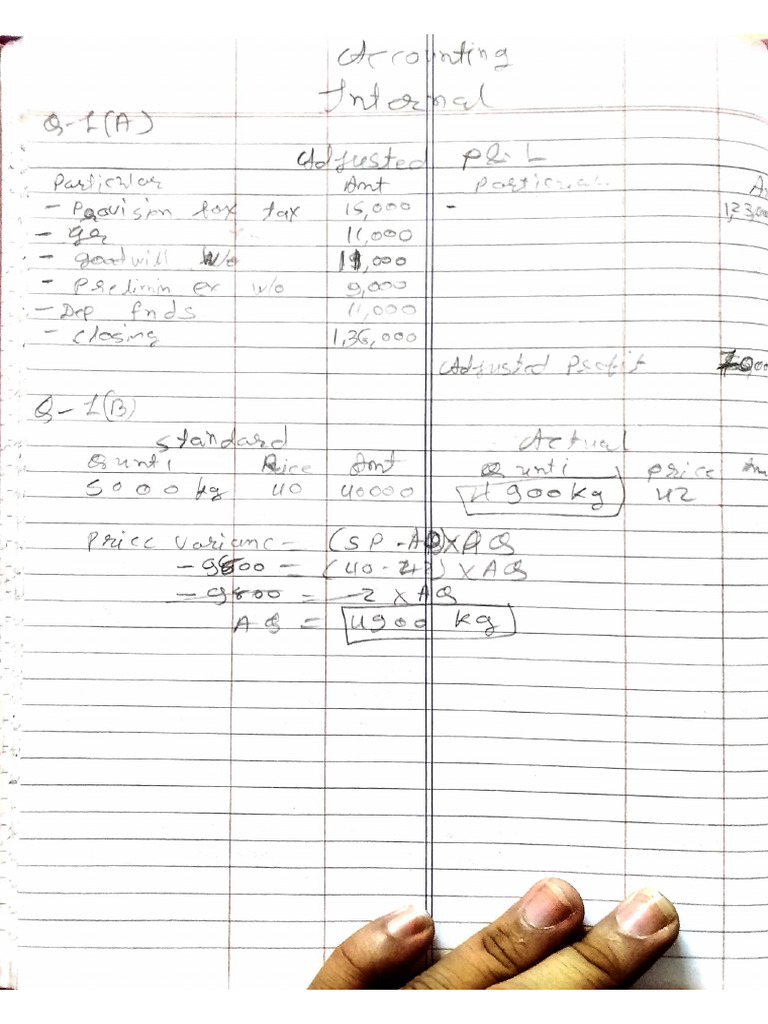 Accounting
Internal
Q-1(A)
Adjusted P&L
Particular Amt Particular
- Provision for tax 15,000 -
- GR 11,000
- goodwill w/o ,000
- Prelimin ex w/o 9,000
- Dep fnds 11,000
- closing 1,36,000
Adjusted Profit
Q-1(B)
Standard Actual
Qunti Rice Amt Qunti price
5000 kg 40 40000 4900kg 42
Price Varianc = (SP-AP)×AQ
-9800 = (40-42)×AQ
-9800 = -2×AQ
AQ = 4900 kg